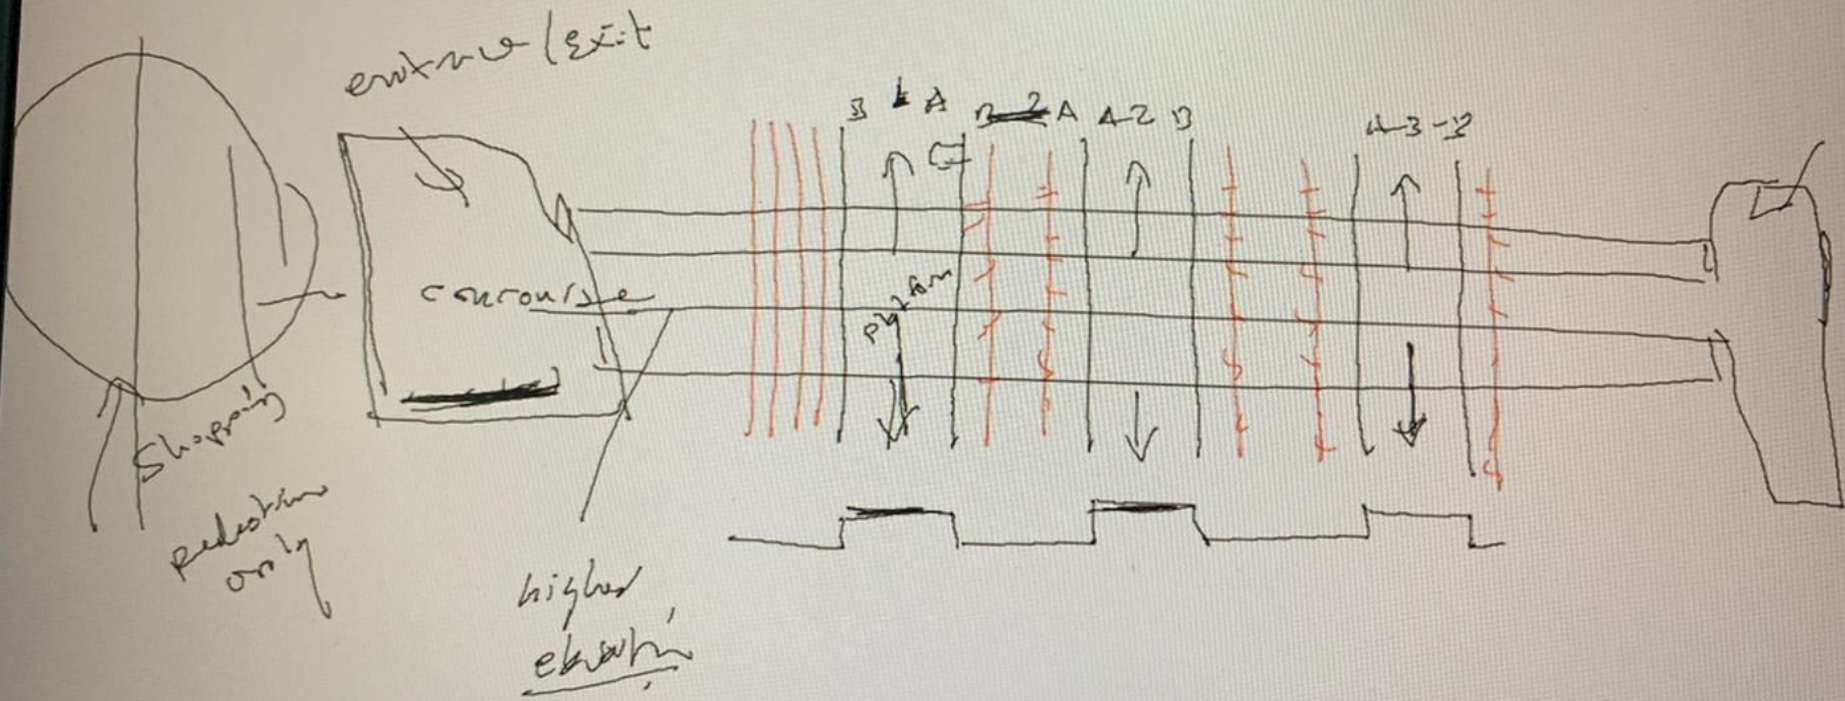 entrance/Exit
B 1 A
B 2 A
A-2 B
A-3-B
concourse
platform
Shopping
pedestrian
only
higher
elevation